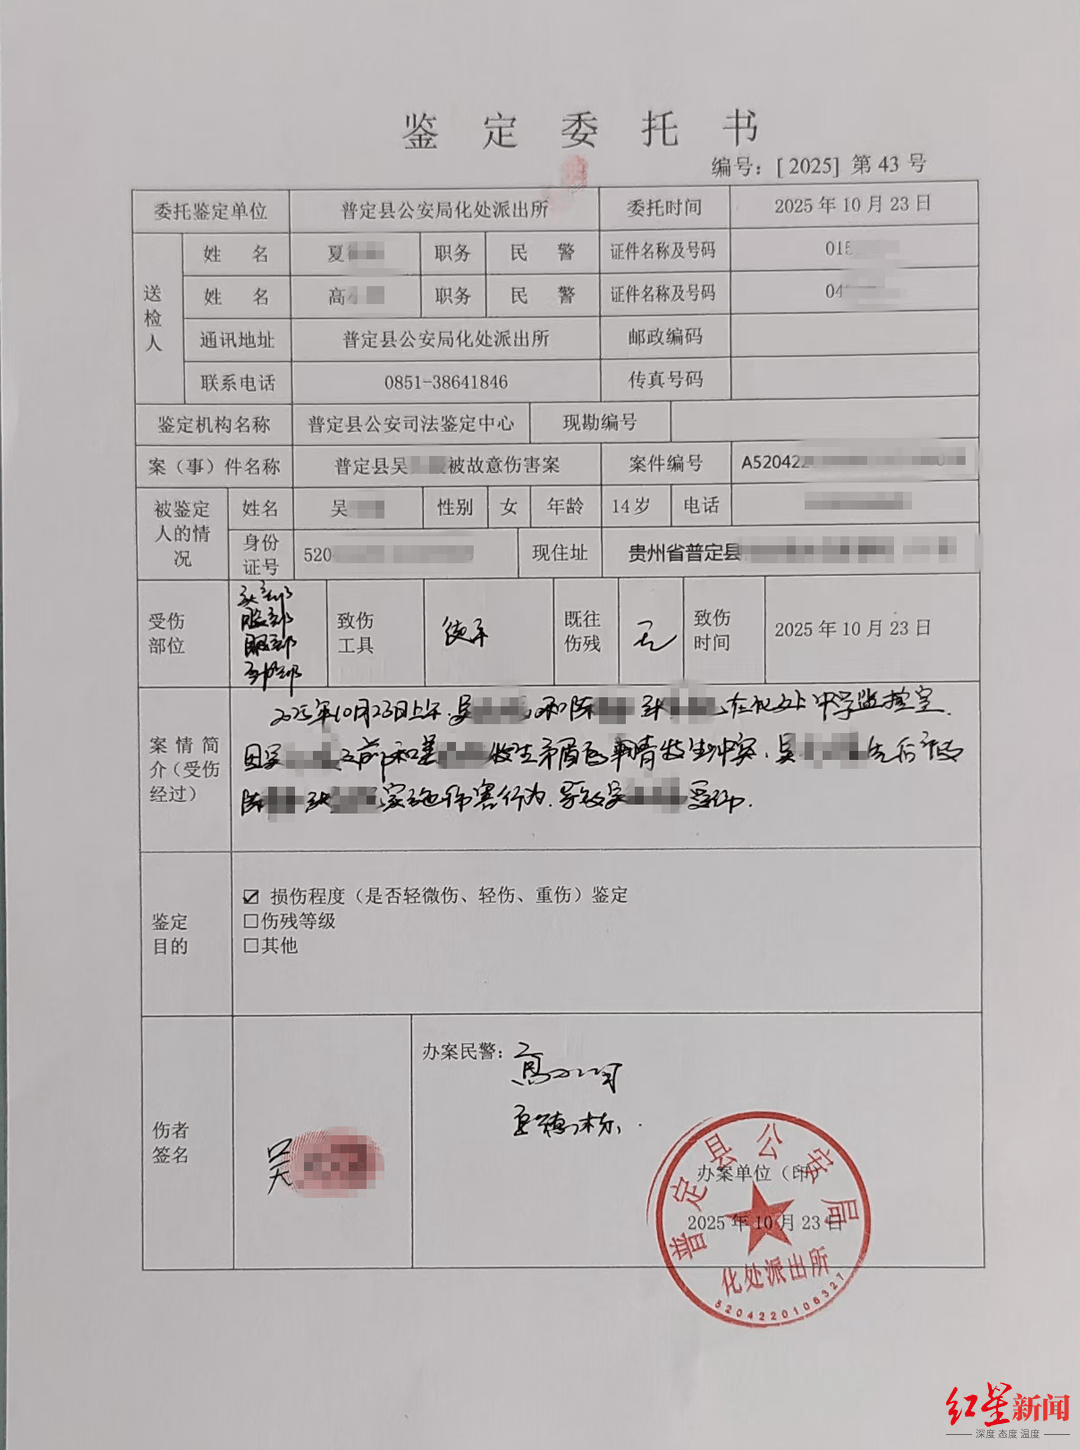 鉴定委托书
编号：[ 2025] 第 43 号
委托鉴定单位 普定县公安局化处派出所 委托时间 2025 年 10 月 23 日
送检人
姓 名 夏 职务 民 警 证件名称及号码 018
姓 名 高 职务 民 警 证件名称及号码 04
通讯地址 普定县公安局化处派出所 邮政编码
联系电话 0851-38641846 传真号码
鉴定机构名称 普定县公安司法鉴定中心 现勘编号
案（事）件名称 普定县吴 被故意伤害案 案件编号 A52042
被鉴定人的情况
姓名 吴 性别 女 年龄 14 岁 电话
身份证号 520 现住址 贵州省普定县
受伤部位 头部 致伤工具 徒手 既往伤残 无 致伤时间 2025 年 10 月 23 日
腿部
案情简介（受伤经过）
2025年10月23日上午,吴 和陈 张 在化处中学监控室
因吴 之前和姜 发生矛盾的事情发生冲突,吴 先后被
陈 张 实施伤害行为,导致吴 受伤.
鉴定目的
☑ 损伤程度（是否轻微伤、轻伤、重伤）鉴定
□伤残等级
□其他
伤者签名 吴
办案民警：
办案单位（印）
2025 年 10 月 23 日
普定县公安局
化处派出所
5204220106327
红星新闻
深度 态度 温度